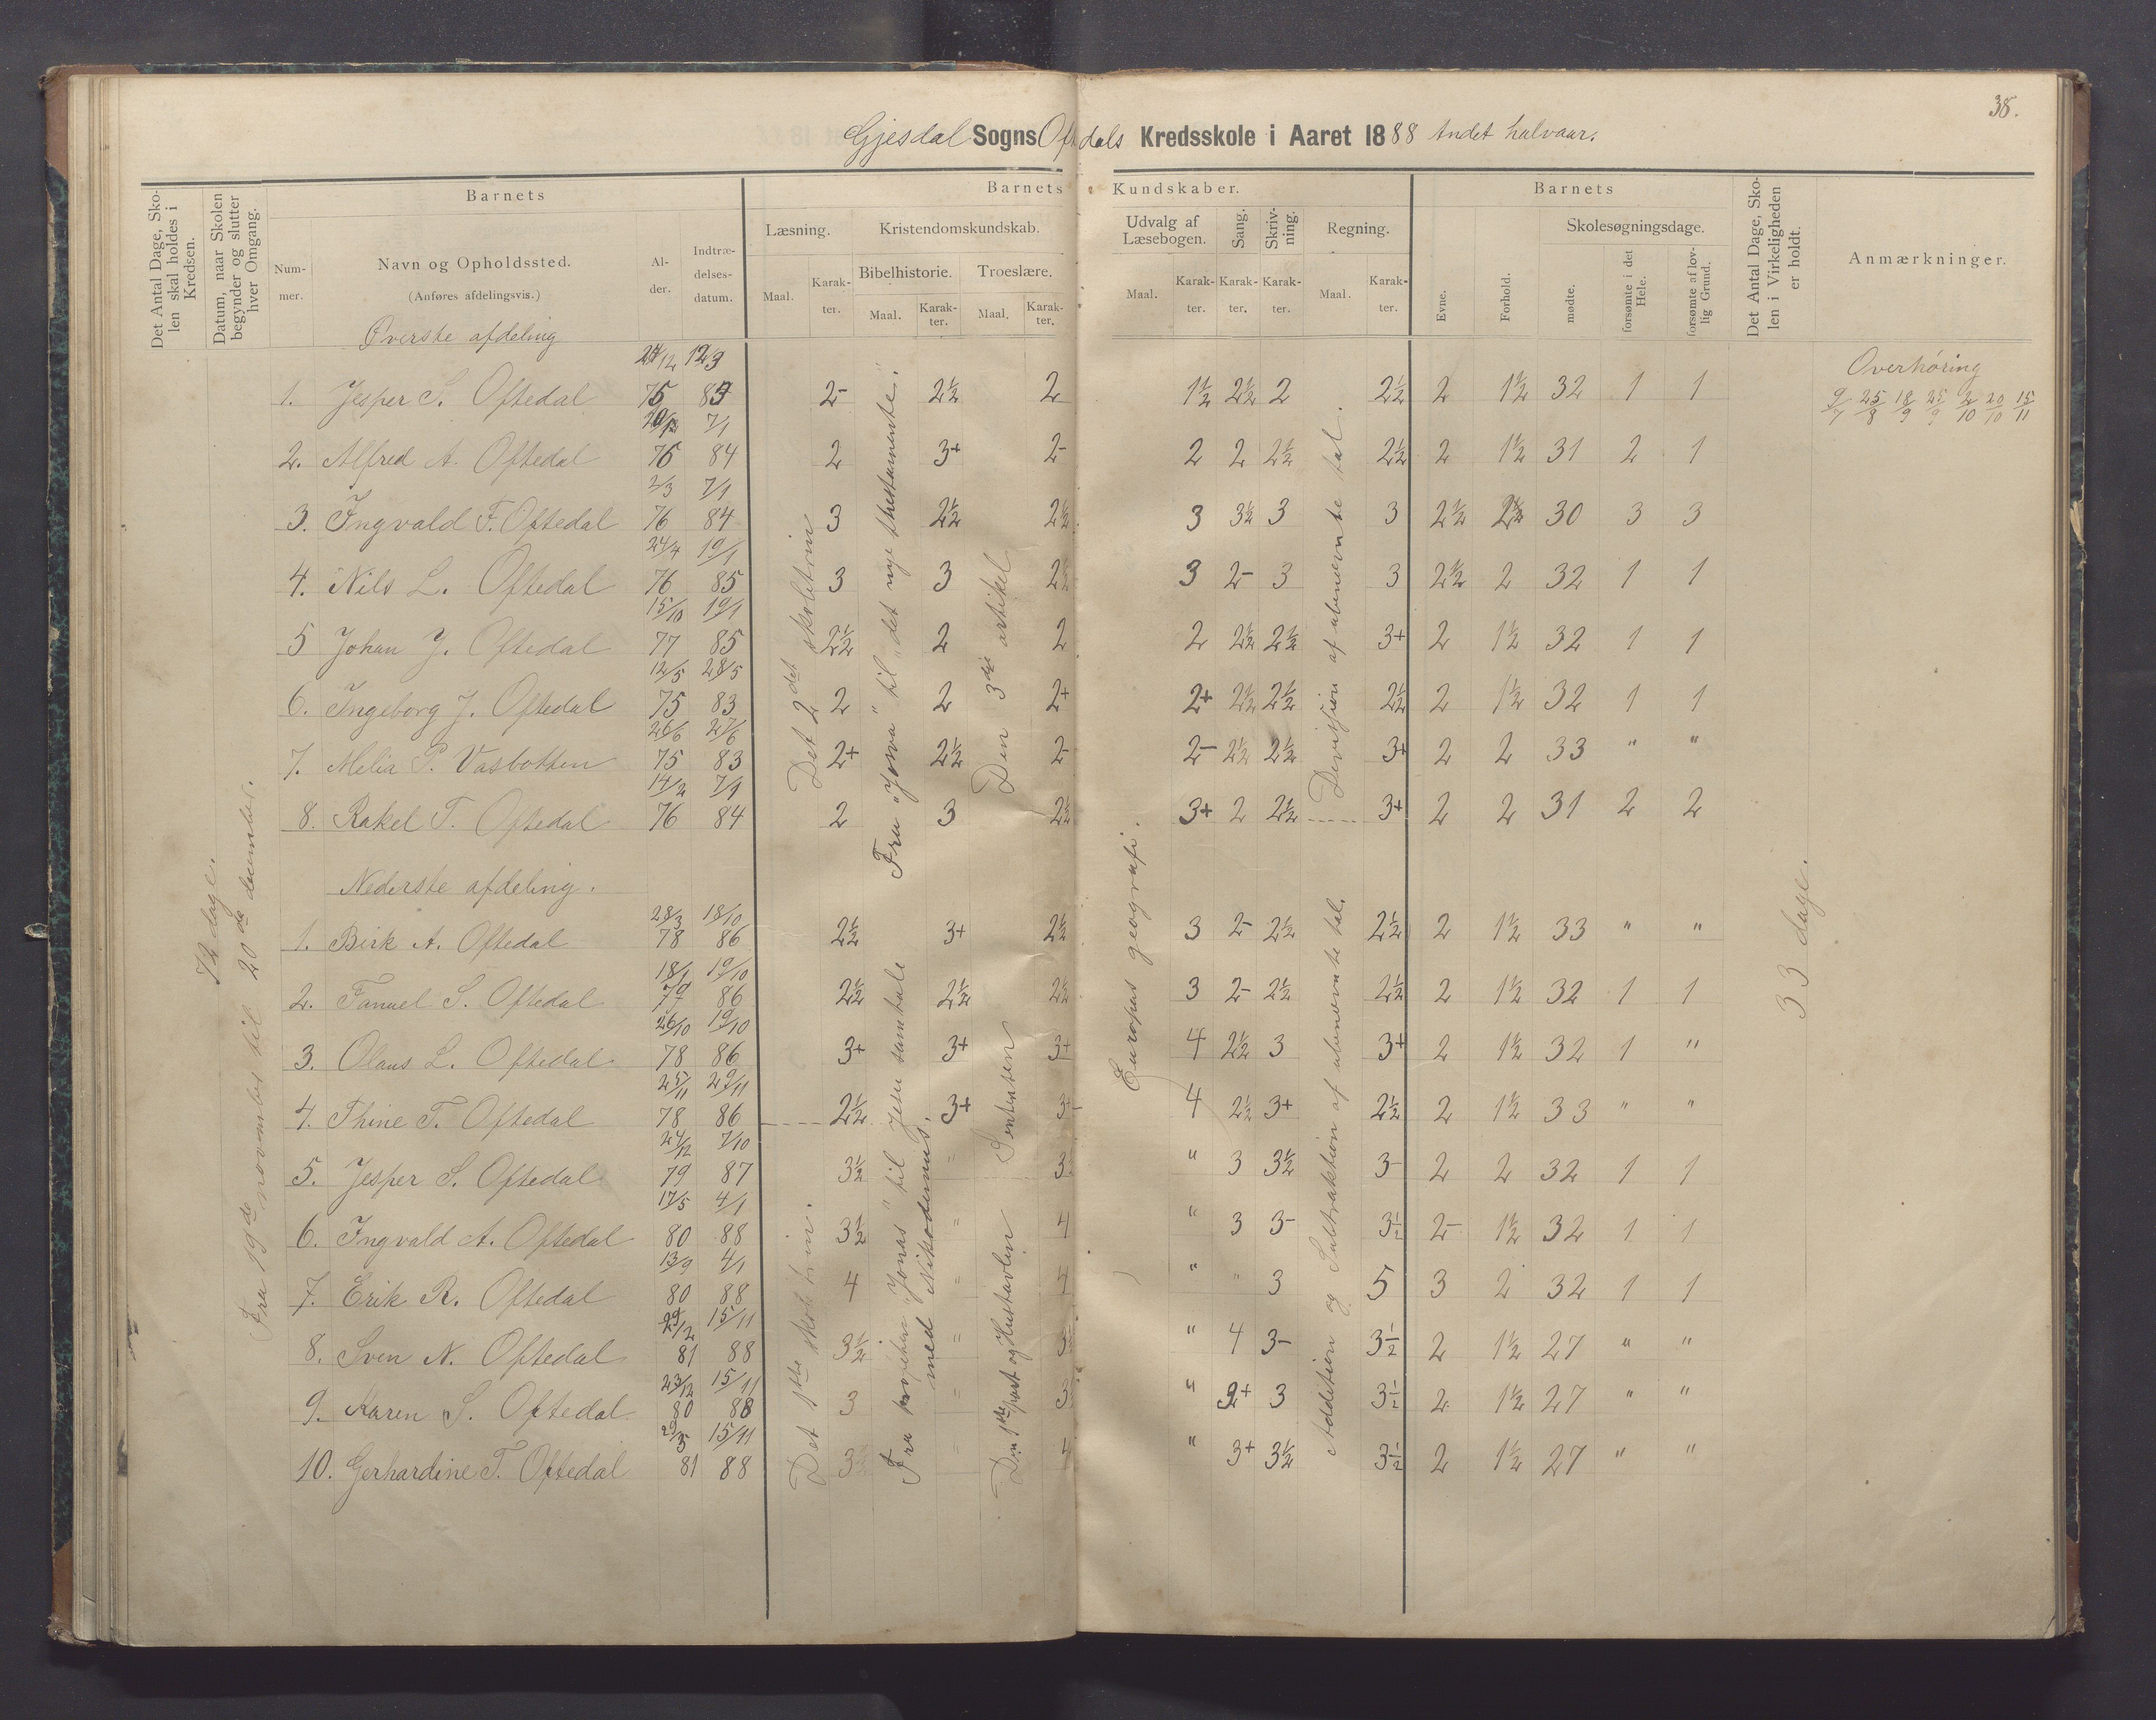 38.
Gjesdal Sogns Oftedals Kredsskole i Aaret 1888 Andet halvaar.
Det Antal Dage, Skolen skal holdes i Kredsen.
Datum, naar Skolen begynder og slutter hver Omgang.
Barnets
Nummer.
Navn og Opholdssted.
(Anføres afdelingsvis.)
Alder.
Indtrædelsesdatum.
Barnets Kundskaber.
Læsning.
Maal.
Karakter.
Kristendomskundskab.
Bibelhistorie.
Maal.
Karakter.
Troeslære.
Maal.
Karakter.
Udvalg af Læsebogen.
Maal.
Karakter.
Sang.
Karakter.
Skrivning.
Karakter.
Regning.
Maal.
Karakter.
Barnets
Evne.
Forhold.
Skolesøgningsdage.
mødte.
forsømte i det Hele.
forsømte af lovlig Grund.
Det Antal Dage, Skolen i Virkeligheden er holdt.
Anmærkninger.
72 dage.
Fra 19de november til 20de december.
Øverste afdeling
1. Jesper S. Oftedal 75 83 2- 2½ 2 1½ 2½ 2 2½ 2 1½ 32 1 1
2. Alfred A. Oftedal 76 7/1 84 2 3+ 2- 2 2 2½ 2½ 2 1½ 31 2 1
3. Ingvald F. Oftedal 2/3 76 7/1 84 3 2½ 2½ 3 3½ 3 3 2½ 30 3 3
4. Nils L. Oftedal 24/4 76 19/1 85 3 3 2½ 3 2- 3 3 2½ 2 32 1 1
5 Johan J. Oftedal 15/10 77 19/1 85 2½ 2 2 2 2½ 2½ 3+ 2 1½ 32 1 1
6. Ingeborg J. Oftedal 12/5 75 28/5 83 2 2 2+ 2+ 2½ 2½ 2½ 2 1½ 32 1 1
7. Melia P. Vasbotten 26/6 75 27/6 83 2+ 2½ 2- 2- 2½ 2½ 3+ 2 2 33 " "
8. Rakel T. Oftedal 14/2 76 7/1 84 2 3 2½ 3+ 2 2½ 3+ 2 2 31 2 2
Det 2det skoletrin
Fra "Josva" til "det nye thestamente".
Den 3die artikel
Europas geografi.
Divisjon af ubenævnte tal.
Nederste afdeling.
1. Birk A. Oftedal 28/3 78 18/10 86 2½ 3+ 2½ 3 2- 2½ 2½ 2 1½ 33 " "
2. Fanuel S. Oftedal 18/1 79 19/10 86 2½ 2½ 2½ 3 2- 2½ 2½ 2 1½ 32 1 1
3. Olaus L. Oftedal 26/10 78 19/10 86 3+ 3+ 3+ 4 2½ 3 3+ 2 1½ 32 1 "
4. Thine T. Oftedal 25/11 78 29/11 86 2½ 3+ 3+ 4 2½ 3+ 2½ 2 1½ 33 " "
5. Jesper S. Oftedal 24/12 79 7/10 87 3½ " 3½ " 3 3½ 3- 2 2 32 1 1
6. Ingvald A. Oftedal 17/5 80 4/1 88 3½ " 4 " 3 3- 3½ 2- 1½ 32 1 1
7. Erik R. Oftedal 13/9 80 4/1 88 4 " 4 " " 3 5 3 2 32 1 1
8. Sven N. Oftedal 81 15/11 88 3½ " " 4 3- 3½ 2 1½ 27 " "
9. Karen S. Oftedal 23/12 80 15/11 88 3 " 3 " 3 3½ 2 1½ 27 " "
10. Gerhardine T. Oftedal 81 15/11 88 3½ " 4 " 3+ 3½ 3½ 2 1½ 27 " "
Det 1ste skoletrin.
Fra profeten "Jonas" til Jesu samtale med Nikodemus.
Sentensen
Den 1ste part og Hustavlen
Addition og Subtraktion af ubenævnte tal.
33 dage.
Overhøring
9/7 25/8 18/9 25/9 2/10 20/10 15/11